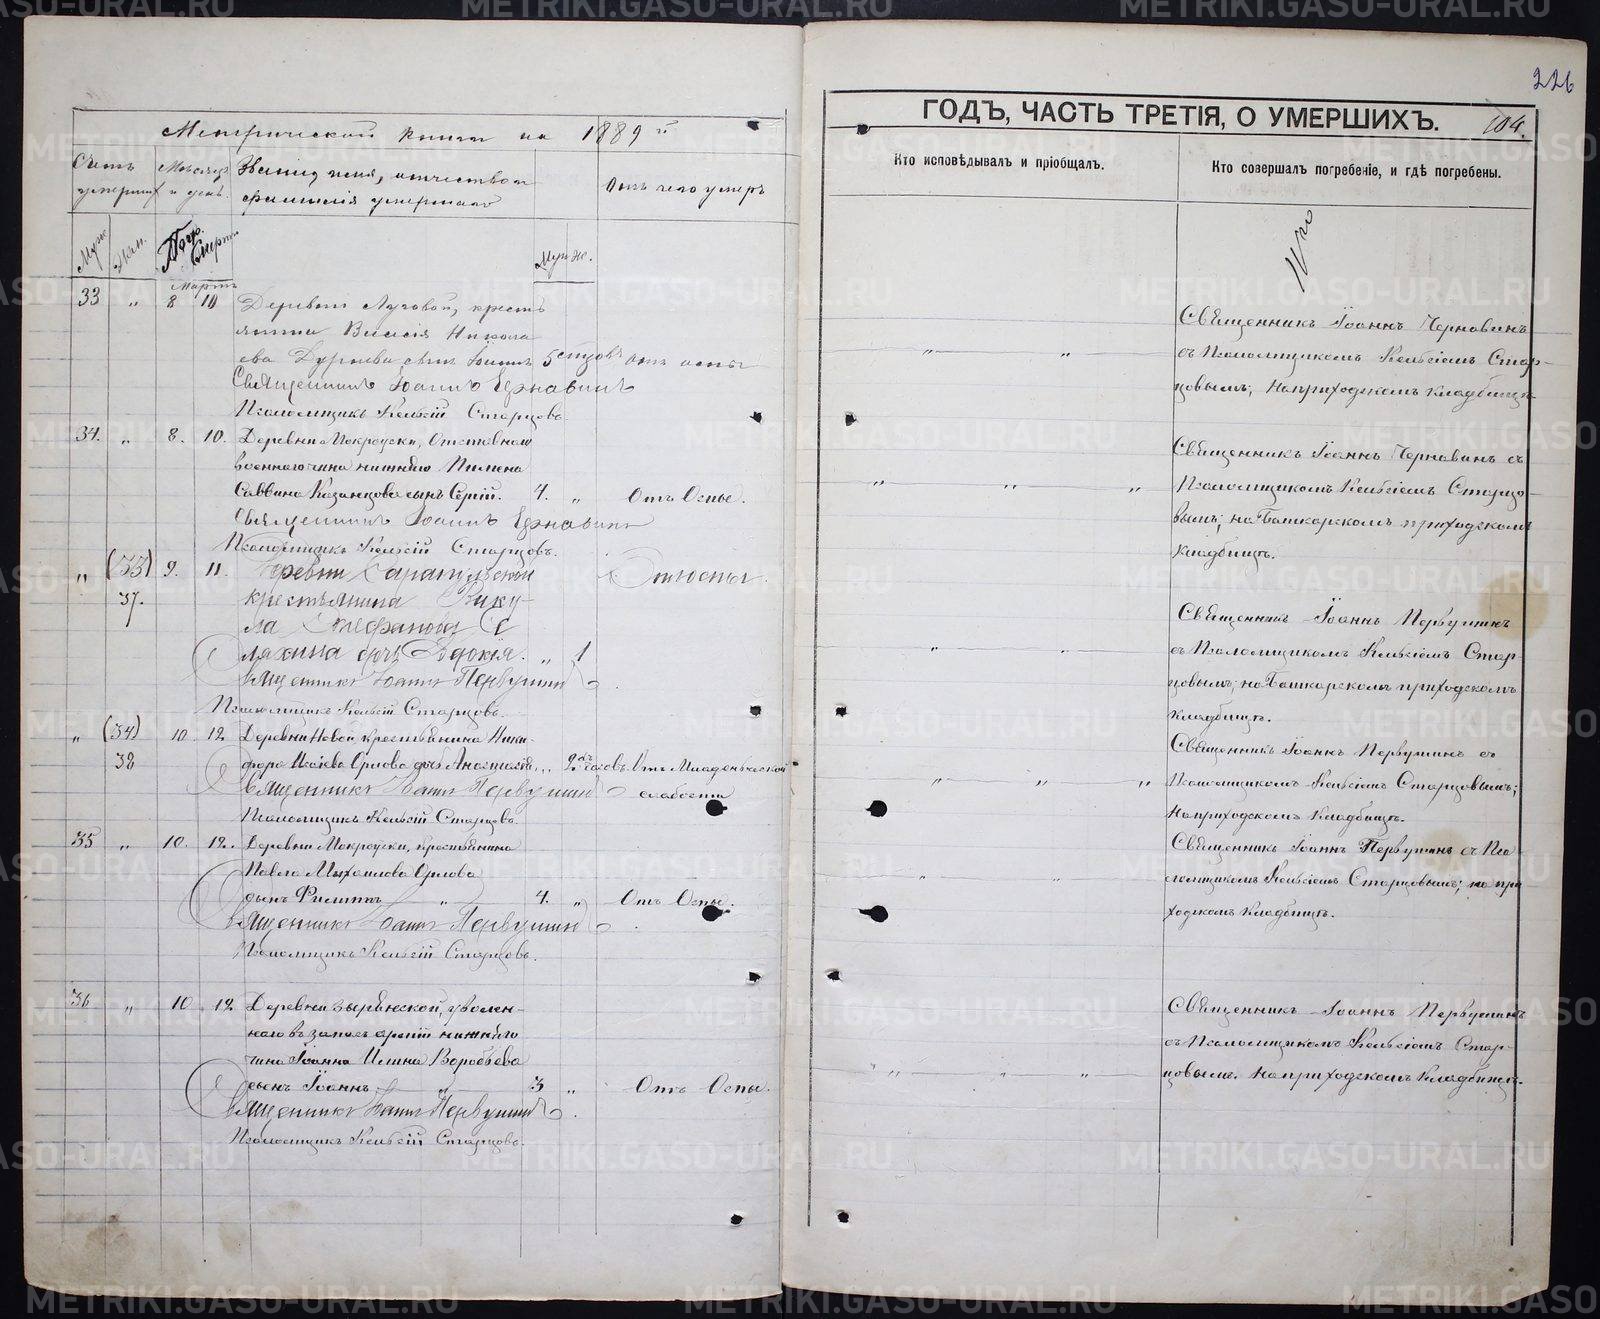 226
Метрической книги на 1889 й
ГОДЪ, ЧАСТЬ ТРЕТІЯ, О УМЕРШИХЪ.
104.
Счетъ умершихъ
Мѣсяцъ и день.
Званіе, имя, отчество и фамилія умершаго
Отъ чего умеръ
Кто исповѣдывалъ и пріобщалъ.
Кто совершалъ погребеніе, и гдѣ погребены.
Муж.
Жен.
Смерт.
Муж.
Ж.
Мартъ
33 „ 8 10 Деревни Луговой, кресть
янина Николa
ева сынъ 5 Отъ оспы
Священникъ Іоаннъ Чернавинъ
Псаломщикъ Кельсій Старцовъ.
Священникъ Іоаннъ Чернавинъ
съ Псаломщикомъ Кельсіемъ Стар-
цовымъ; На приходскомъ кладбищѣ.
34. „ 8. 10. Деревни Мокроуски, Отставнаго
военнаго чина нижняго Пимена
Саввина Казанцова сынъ Сергій. 4. „ Отъ Оспы.
Священникъ Іоаннъ Чернавинъ
Псаломщикъ Кельсій Старцовъ.
Священникъ Іоаннъ Чернавинъ съ
Псаломщикомъ Кельсіемъ Старцо-
вымъ; на Башкарскомъ приходскомъ
кладбищѣ.
„ (33) 9. 11. Деревни
37. крестьянина Вику-
ла Стефанова С
ляхина дочь Евдокія. „ 1 Отъ оспы.
Священникъ Іоаннъ Первушинъ
Псаломщикъ Кельсій Старцовъ.
Священникъ Іоаннъ Первушинъ
съ Псаломщикомъ Кельсіемъ Стар-
цовымъ; на Башкарскомъ приходскомъ
кладбищѣ.
„ (34) 10. 12. Деревни Новой крестьянина Ники-
38 фора Исаева Орлова дочь Анастасія „ 2хъ часовъ. Отъ Младенческой
слабости
Священникъ Іоаннъ Первушинъ
Псаломщикъ Кельсій Старцовъ.
Священникъ Іоаннъ Первушинъ съ
Псаломщикомъ Кельсіемъ Старцовымъ;
На приходскомъ Кладбищѣ.
35 „ 10. 12. Деревни Мокроуски, крестьянина
Павла Михаилова Орлова
сынъ Филиппъ „ 4. „ Отъ Оспы.
Священникъ Іоаннъ Первушинъ
Псаломщикъ Кельсій Старцовъ.
Священникъ Іоаннъ Первушинъ съ Пса
ломщикомъ Кельсіемъ Старцовымъ; на при
ходскомъ кладбищѣ.
36 „ 10 12 Деревни Зырянской, уволен-
наго въ запасъ арміи нижняго
чина Іоанна Ильина Воробьева
сынъ Іоаннъ „ 3 „ Отъ Оспы.
Священникъ Іоаннъ Первушинъ
Псаломщикъ Кельсій Старцовъ.
Священникъ Іоаннъ Первушинъ
съ Псаломщикомъ Кельсіемъ Стар-
цовымъ. На приходскомъ Кладбищѣ.
METRIKI.GASO-URAL.RU